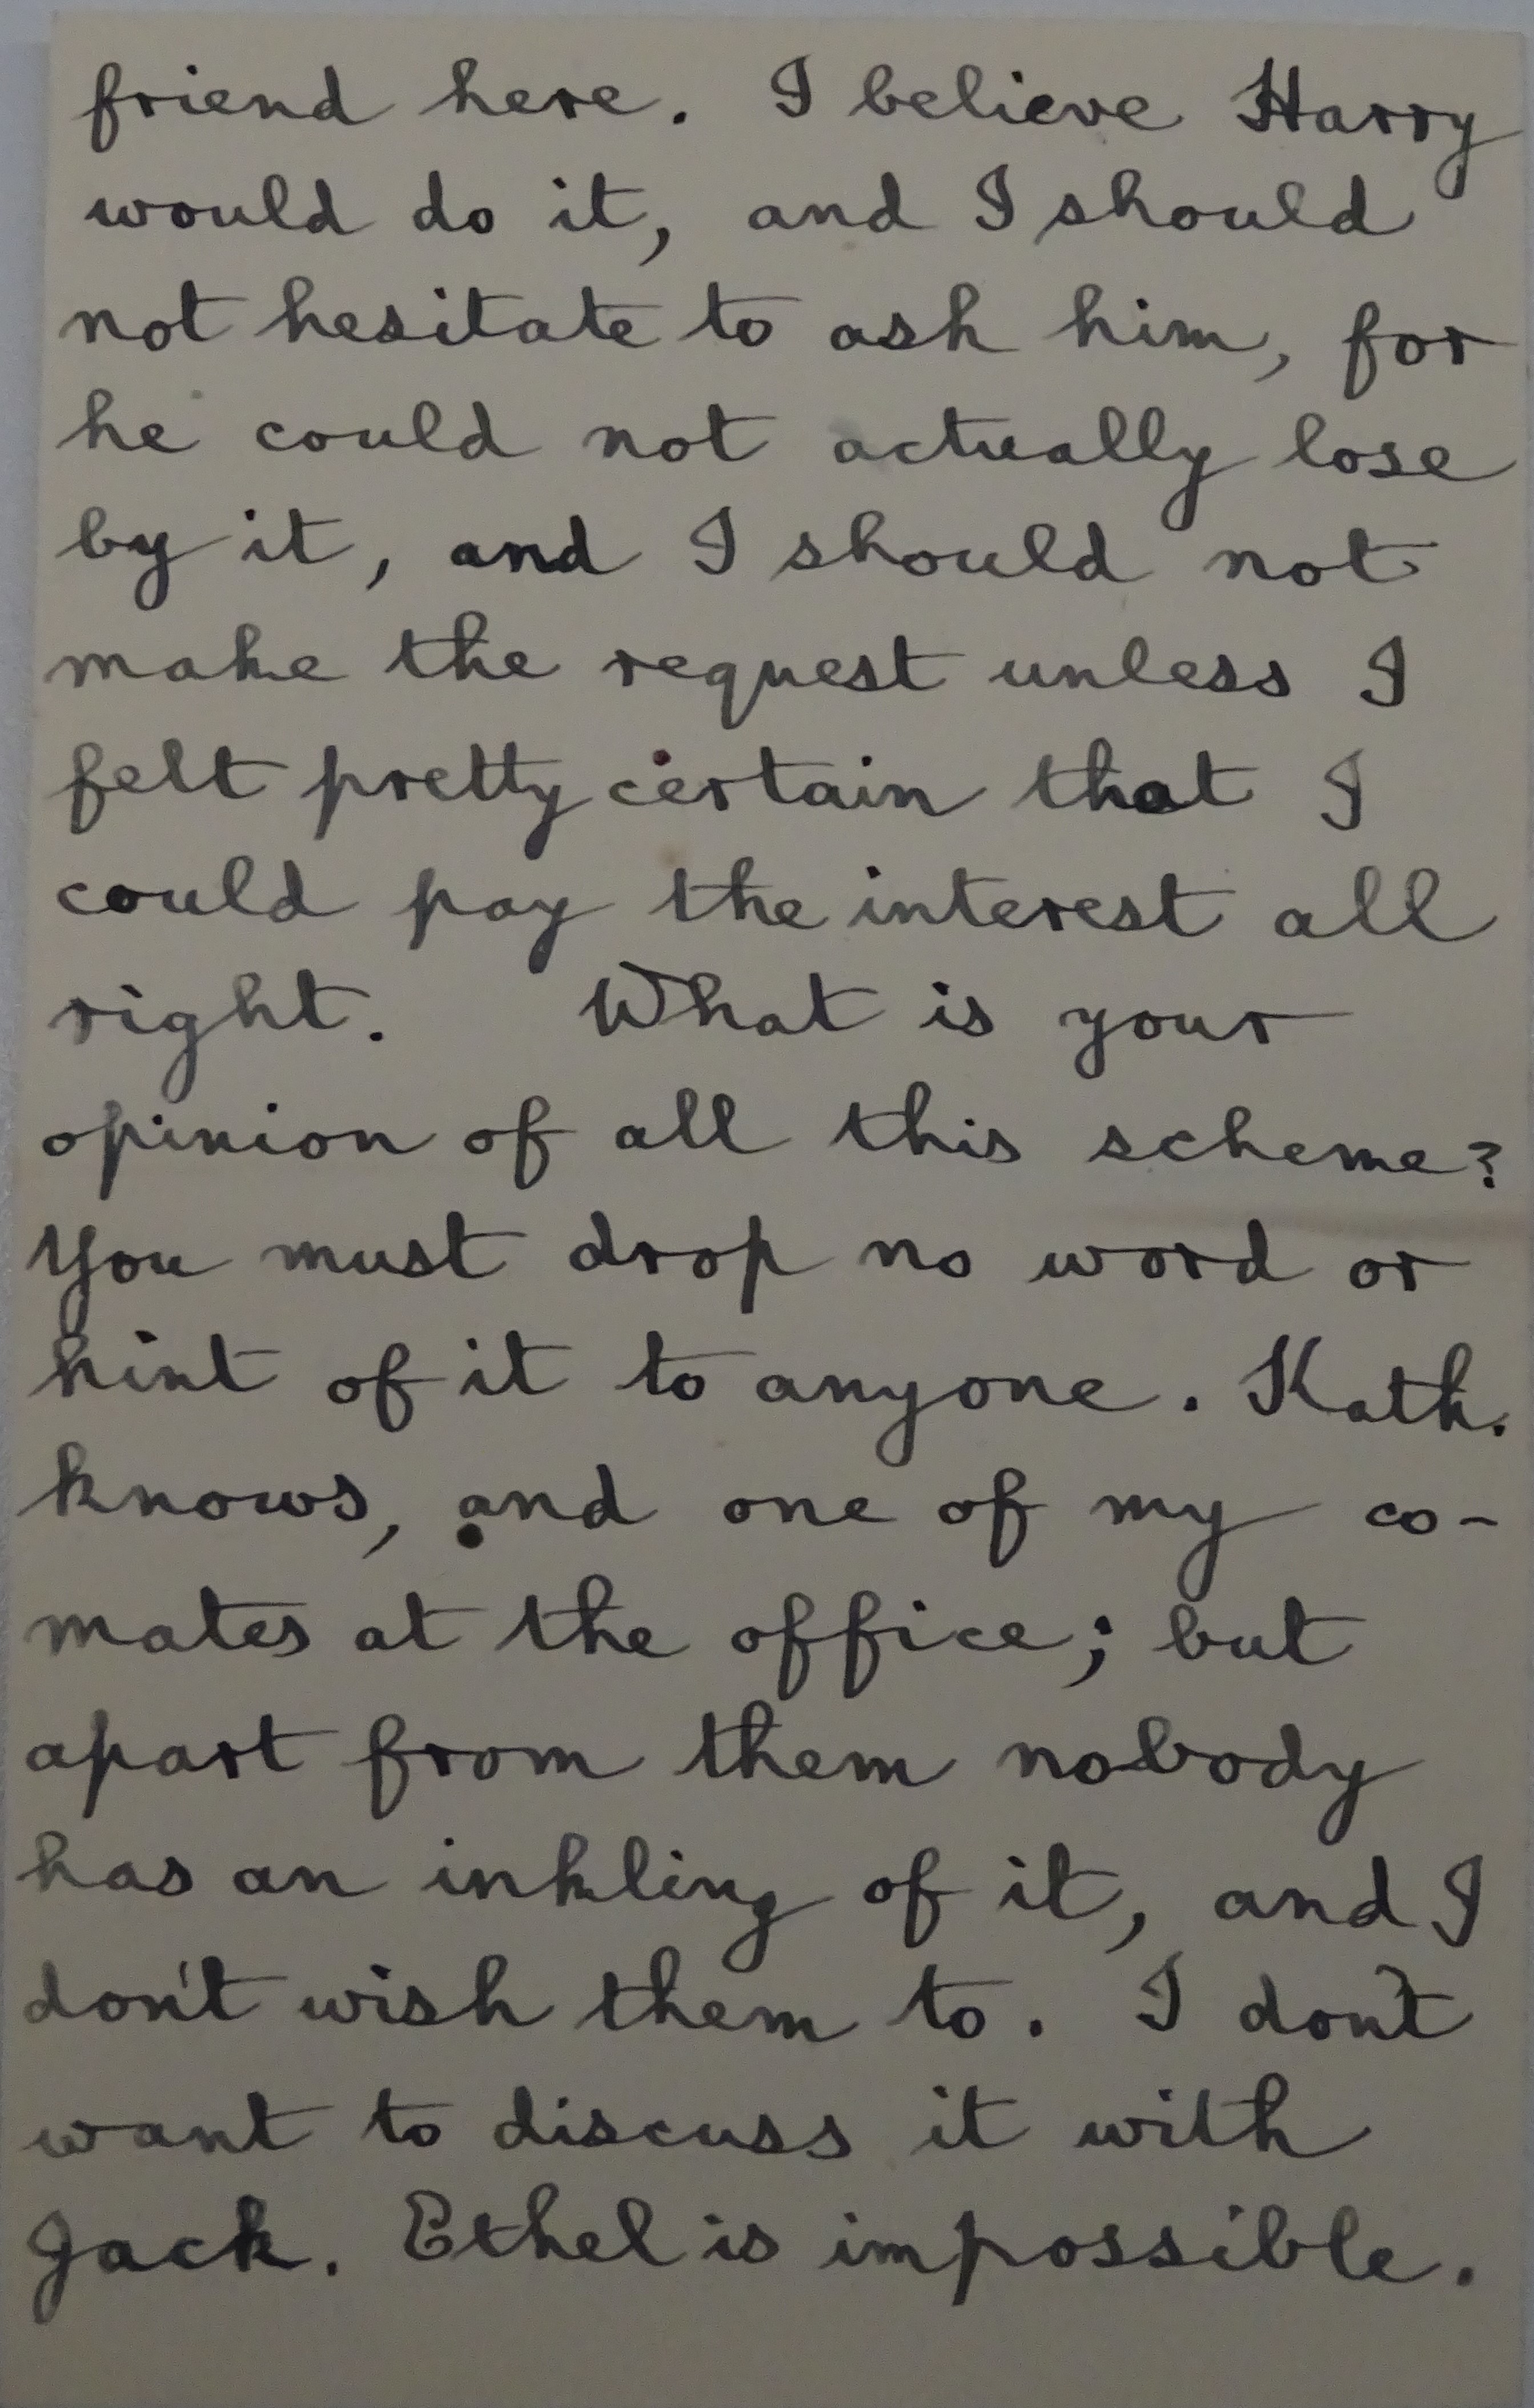 friend here. I believe Harry
would do it, and I should
not hesitate to ask him, for
he could not actually lose
by it, and I should not
make the request unless I
felt pretty certain that I
could pay the interest all
right. What is your
opinion of all this scheme?
You must drop no word or
hint of it to anyone. Kath.
knows, and one of my co-
mates at the office; but
apart from them nobody
has an inkling of it, and I
don't wish them to. I don't
want to discuss it with
Jack. Ethel is impossible.